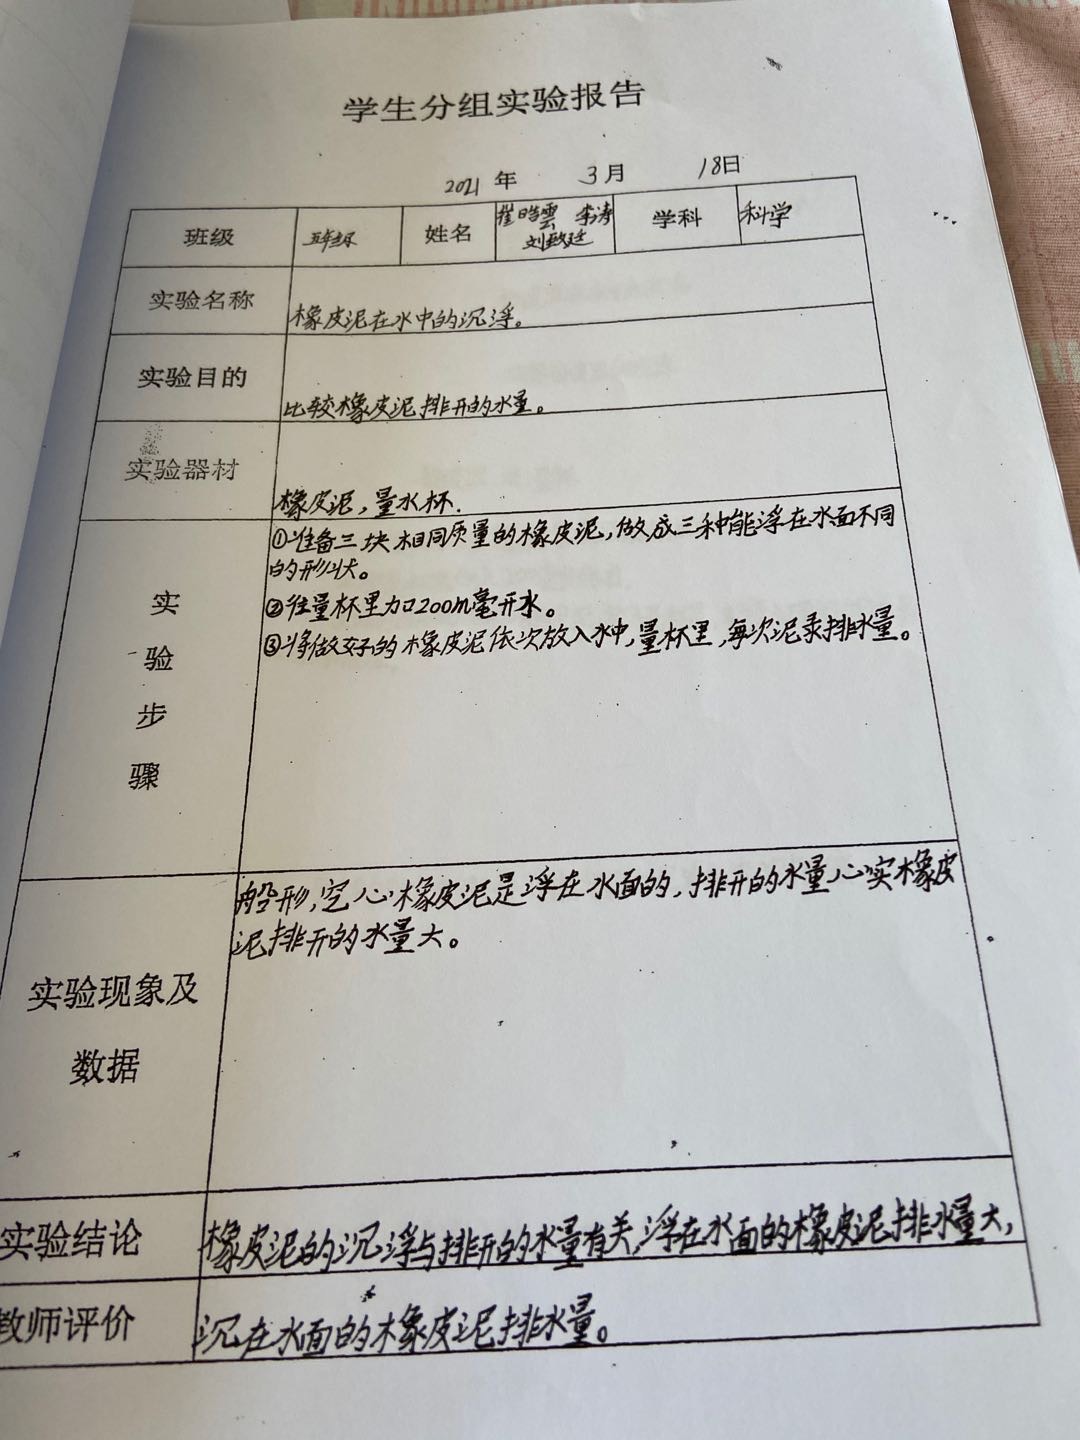 学生分组实验报告
2021 年 3 月 18日
班级 五年级 姓名 崔皓雲 李涛 学科 科学
刘致廷
实验名称 橡皮泥在水中的沉浮。
实验目的 比较橡皮泥排开的水量。
实验器材 橡皮泥,量水杯.
实验步骤
①准备三块相同质量的橡皮泥,做成三种能浮在水面不同
的形状。
②往量杯里加200m毫升水。
③将做好的橡皮泥依次放入水中,量杯里,每次泥录排水量。
实验现象及
数据
船形,空心橡皮泥是浮在水面的,排开的水量心实橡皮
泥排开的水量大。
实验结论 橡皮泥的沉浮与排开的水量有关,浮在水面的橡皮泥排水量大,
教师评价 沉在水面的橡皮泥排水量。